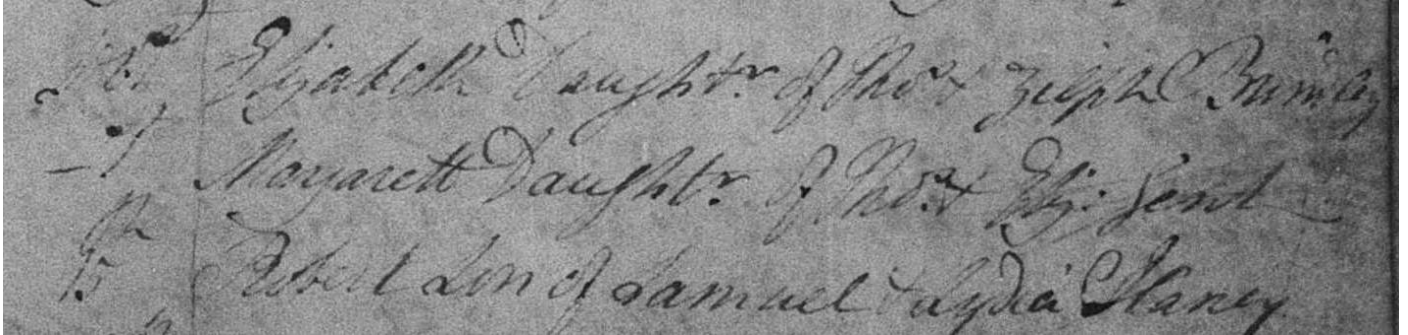 Elizabeth Daught.r of Tho.s & Zilph Brumley
Margarett Daught.r of Tho.s & Eliz: Gent
15 Robert Son of Samuel & Lydia Slaney